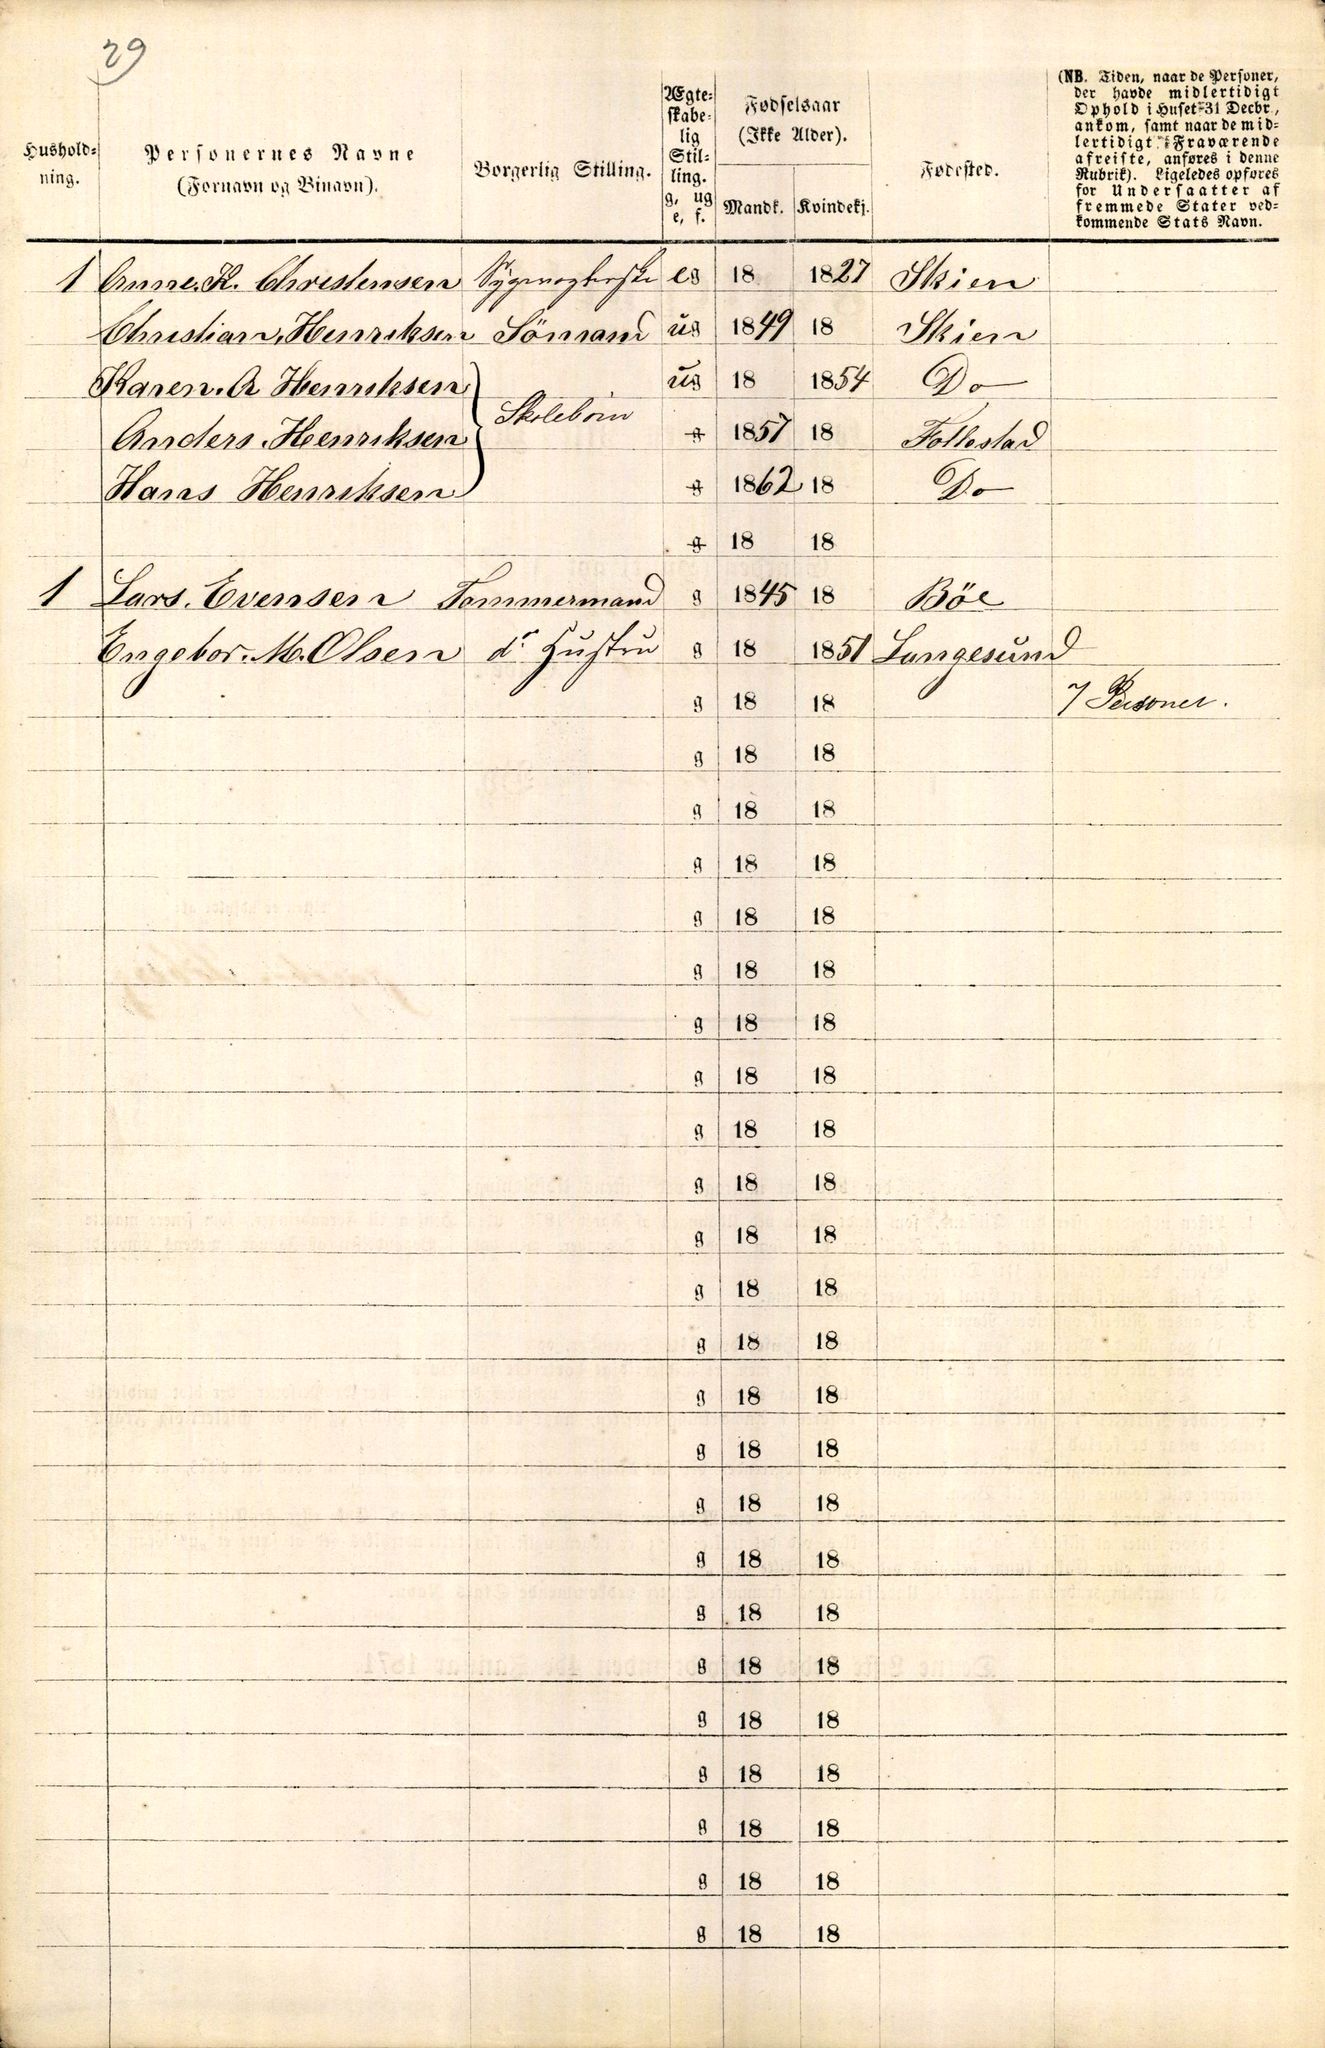 29
Hushold-
ning.
Personernes Navne
(Fornavn og Binavn).
Borgerlig Stilling.
Ægte-
skabe-
lig
Stil-
ling.
g, ug
e, f.
Fødselsaar
(Ikke Alder).
Mandk. Kvindekj.
Fødested.
(NB. Tiden, naar de Personer,
der havde midlertidigt
Ophold i Huset 31 Decbr.,
ankom, samt naar de mid-
lertidigt Fraværende
afreiste, anføres i denne
Rubrik). Ligeledes opføres
for Undersaatter af
fremmede Stater ved-
kommende Stats Navn.
1 Anne. K. Christensen eg 18 1827 Skien
Christian, Henriksen Sömand ug 1849 18 Skien
Karen. A Henriksen ug 18 1854 Do
Skolebörn
Anders. Henriksen g 1857 18 Follestad
Hans Henriksen g 1862 18 Do
g 18 18
1 Lars. Evensen Tommermand g 1845 18 Böe
Engebor. M. Olsen ds Hustru g 18 1851 Langesund
g 18 18 7 Personer.
g 18 18
g 18 18
g 18 18
g 18 18
g 18 18
g 18 18
g 18 18
g 18 18
g 18 18
g 18 18
g 18 18
g 18 18
g 18 18
g 18 18
g 18 18
g 18 18
g 18 18
g 18 18
g 18 18
g 18 18
g 18 18
g 18 18
g 18 18